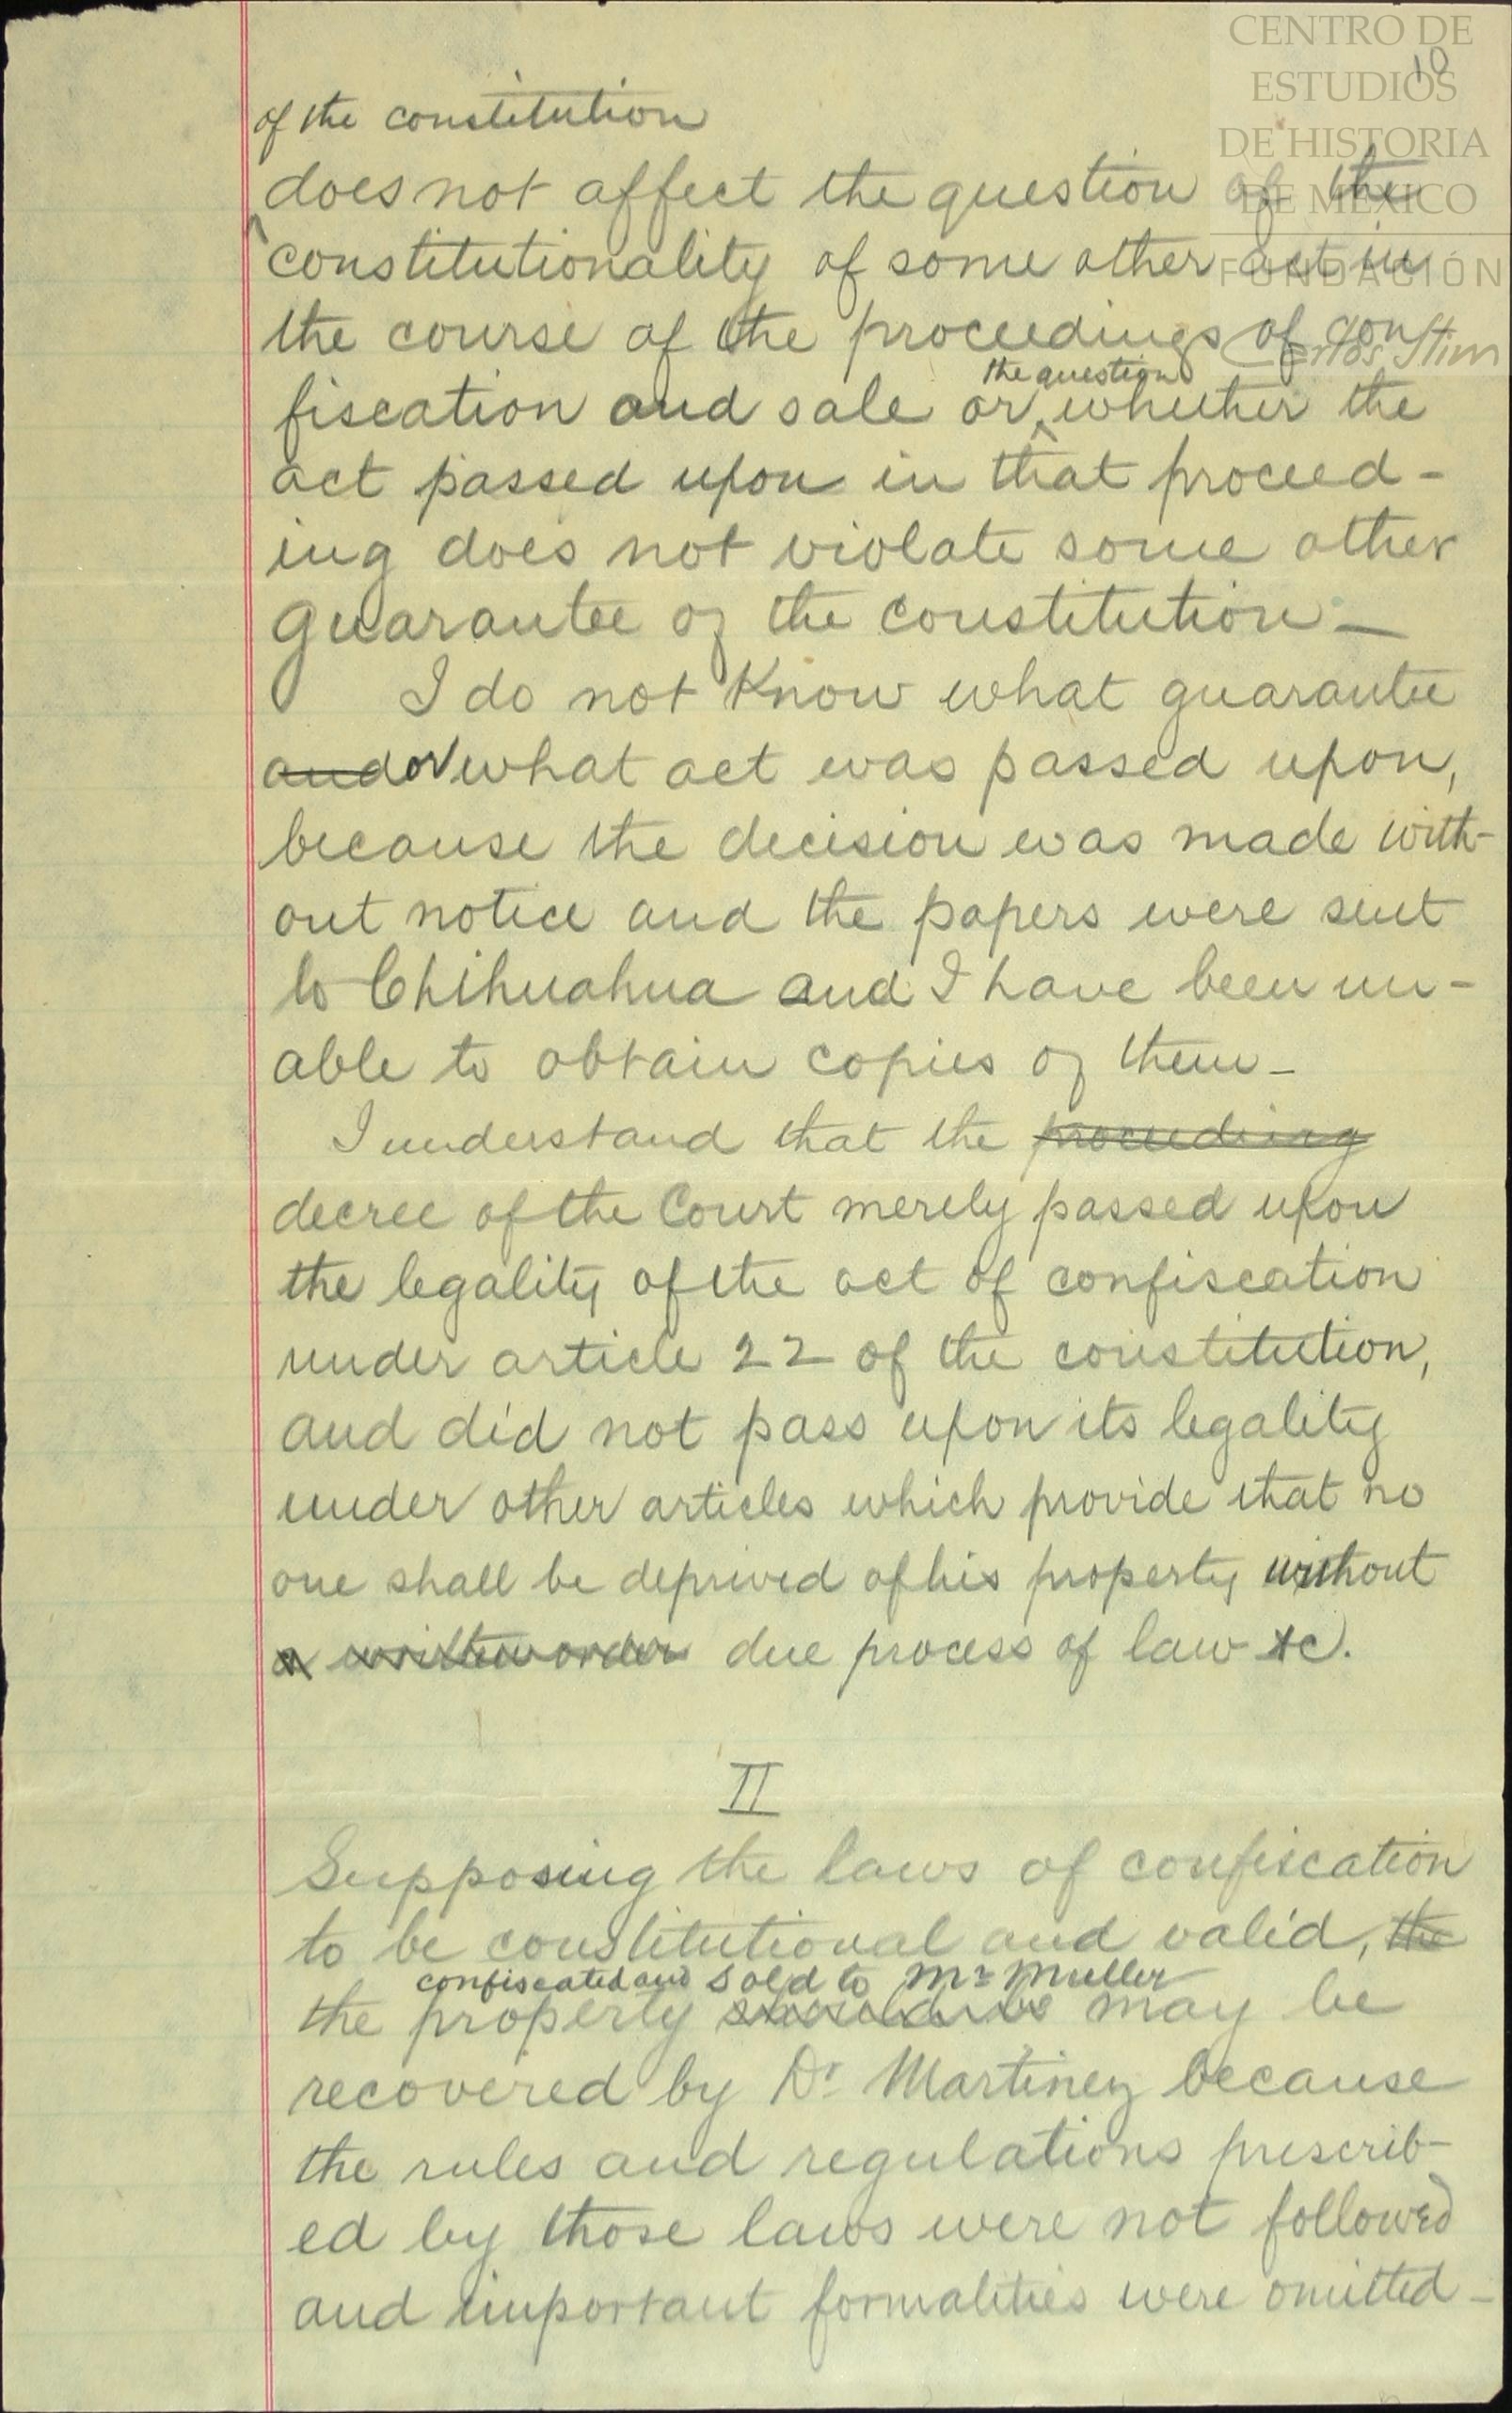 CENTRO DE
ESTUDIOS
DE HISTORIA
DE MÉXICO
FUNDACIÓN
Carlos Slim
10
of the constitution
does not affect the question of the
constitutionality of some other act in
the course of the proceedings of con
the question
fiscation and sale or whether the
act passed upon in that proceed-
ing does not violate some other
guarantee of the constitution -
I do not know what guarantee
and or what act was passed upon,
because the decision was made with-
out notice and the papers were sent
to Chihuahua and I have been un-
able to obtain copies of them -
I understand that the proceeding
decree of the Court merely passed upon
the legality of the act of confiscation
under article 22 of the constitution,
and did not pass upon its legality
under other articles which provide that no
one shall be deprived of his property without
a written order due process of law &c.
II
Supposing the laws of confiscation
to be constitutional and valid, the
confiscated and sold to Mr Muller
the property may be
recovered by Dr Martinez because
the rules and regulations prescrib-
ed by those laws were not followed
and important formalities were omitted -